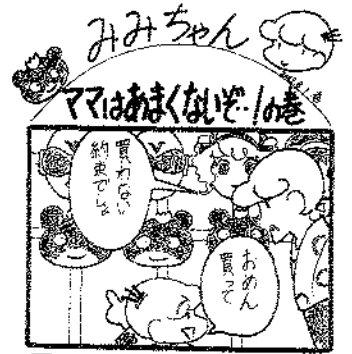 みみちゃん
ママはあまくないぞ‥!の巻
買わない
約束でしょ
おめん
買って